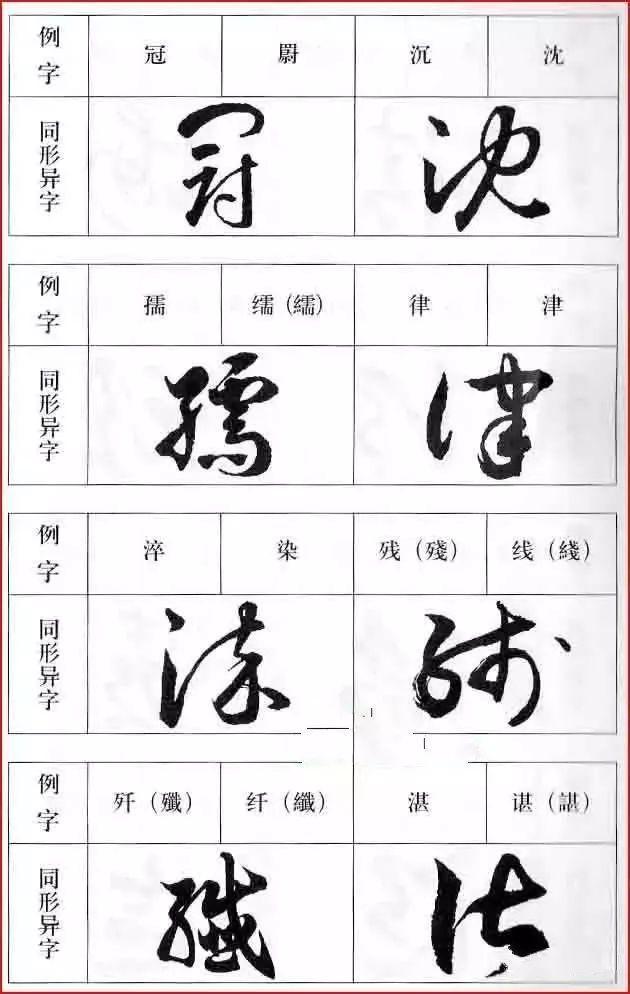 例字 冠 沉 沈
同形异字
例字 孺 𦈡（繻） 律 津
同形异字
例字 淬 染 残（殘） 线（綫）
同形异字
例字 歼（殲） 纤（纖） 湛 谌（諶）
同形异字